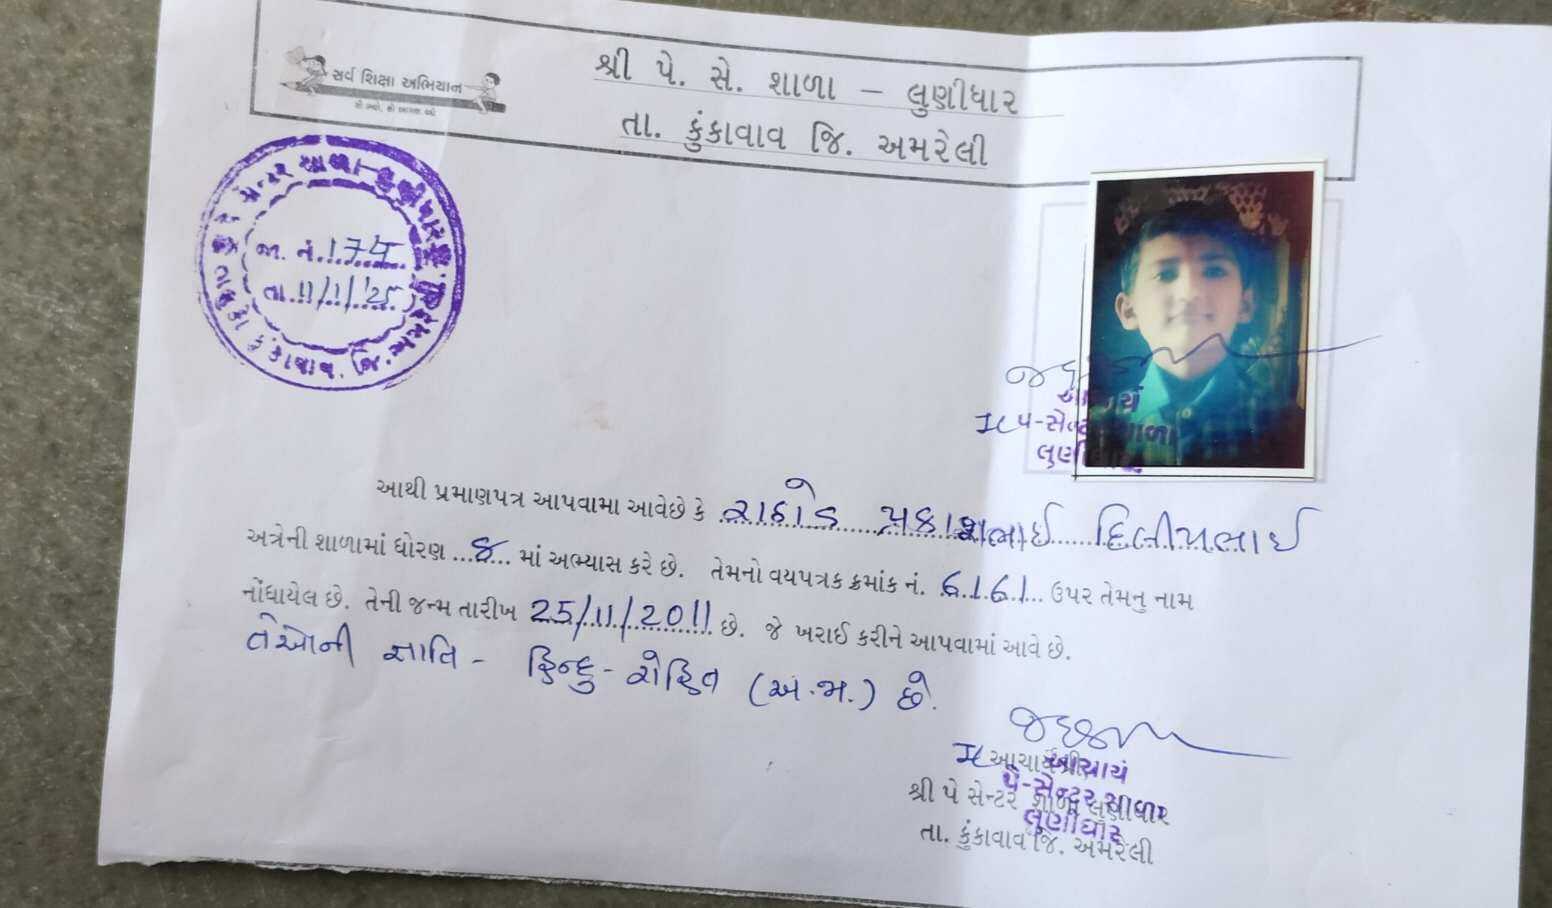 સર્વ શિક્ષા અભિયાન
શ્રી પે. સે. શાળા – લુણીધાર
તા. કુંકાવાવ જિ. અમરેલી
જા. નં. 174
તા. 11/1/25
આચાર્ય
પે-સેન્ટર શાળા
લુણીધાર
આથી પ્રમાણપત્ર આપવામા આવેછે કે રાઠોડ પ્રકાશભાઈ દિલીપભાઈ
અત્રેની શાળામાં ધોરણ ...8... માં અભ્યાસ કરે છે. તેમનો વયપત્રક ક્રમાંક નં. 6161 ઉપર તેમનુ નામ
નોંધાયેલ છે. તેની જન્મ તારીખ 25/11/2011 છે. જે ખરાઈ કરીને આપવામાં આવે છે.
તેઓની જ્ઞાતિ - હિન્દુ - રોહિત (અ.જા.) છે.
આચાર્ય
પે-સેન્ટર શાળા
લુણીધાર
શ્રી પે સેન્ટર શાળા લુણીધાર
તા. કુંકાવાવ જિ. અમરેલી